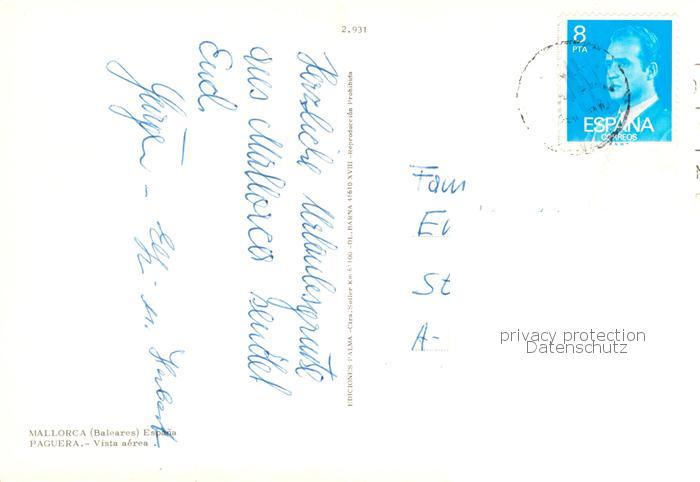 2.931
8
PTA
ESPAÑA
CORREOS
Herzliche Urlaubsgrüße
aus Mallorca sendet
Euch
Jürgen - u. Herbert
EDICIONES PALMA - -DL. BARNA XVIII -Reproducción Prohibida
Fam
St
A-
privacy protection
Datenschutz
MALLORCA (Baleares) España
PAGUERA.- Vista aérea